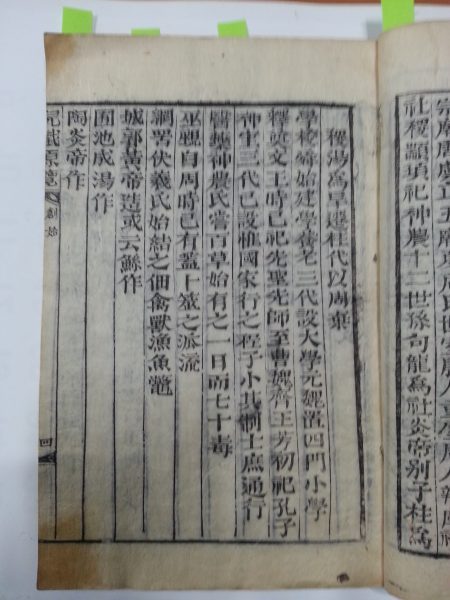 社稷顓頊祀神農十二世孫句龍爲社炎帝別子柱爲
稷湯爲旱遷柱代以周棄
學校
三代設大學元魏置四門小學
釋奠文王時已祀先聖先師至曹魏齊王芳初祀孔子
神
三代已設惟國家行之程子小其制士庶通行
神農氏嘗百草始有之一日而七十毒
巫
自周時已有蓋卜筮之派流
網罟伏羲氏始結之佃禽獸漁魚鼈
城郭黃帝造或云鯀作
園池成湯作
陶炎帝作
創始
四